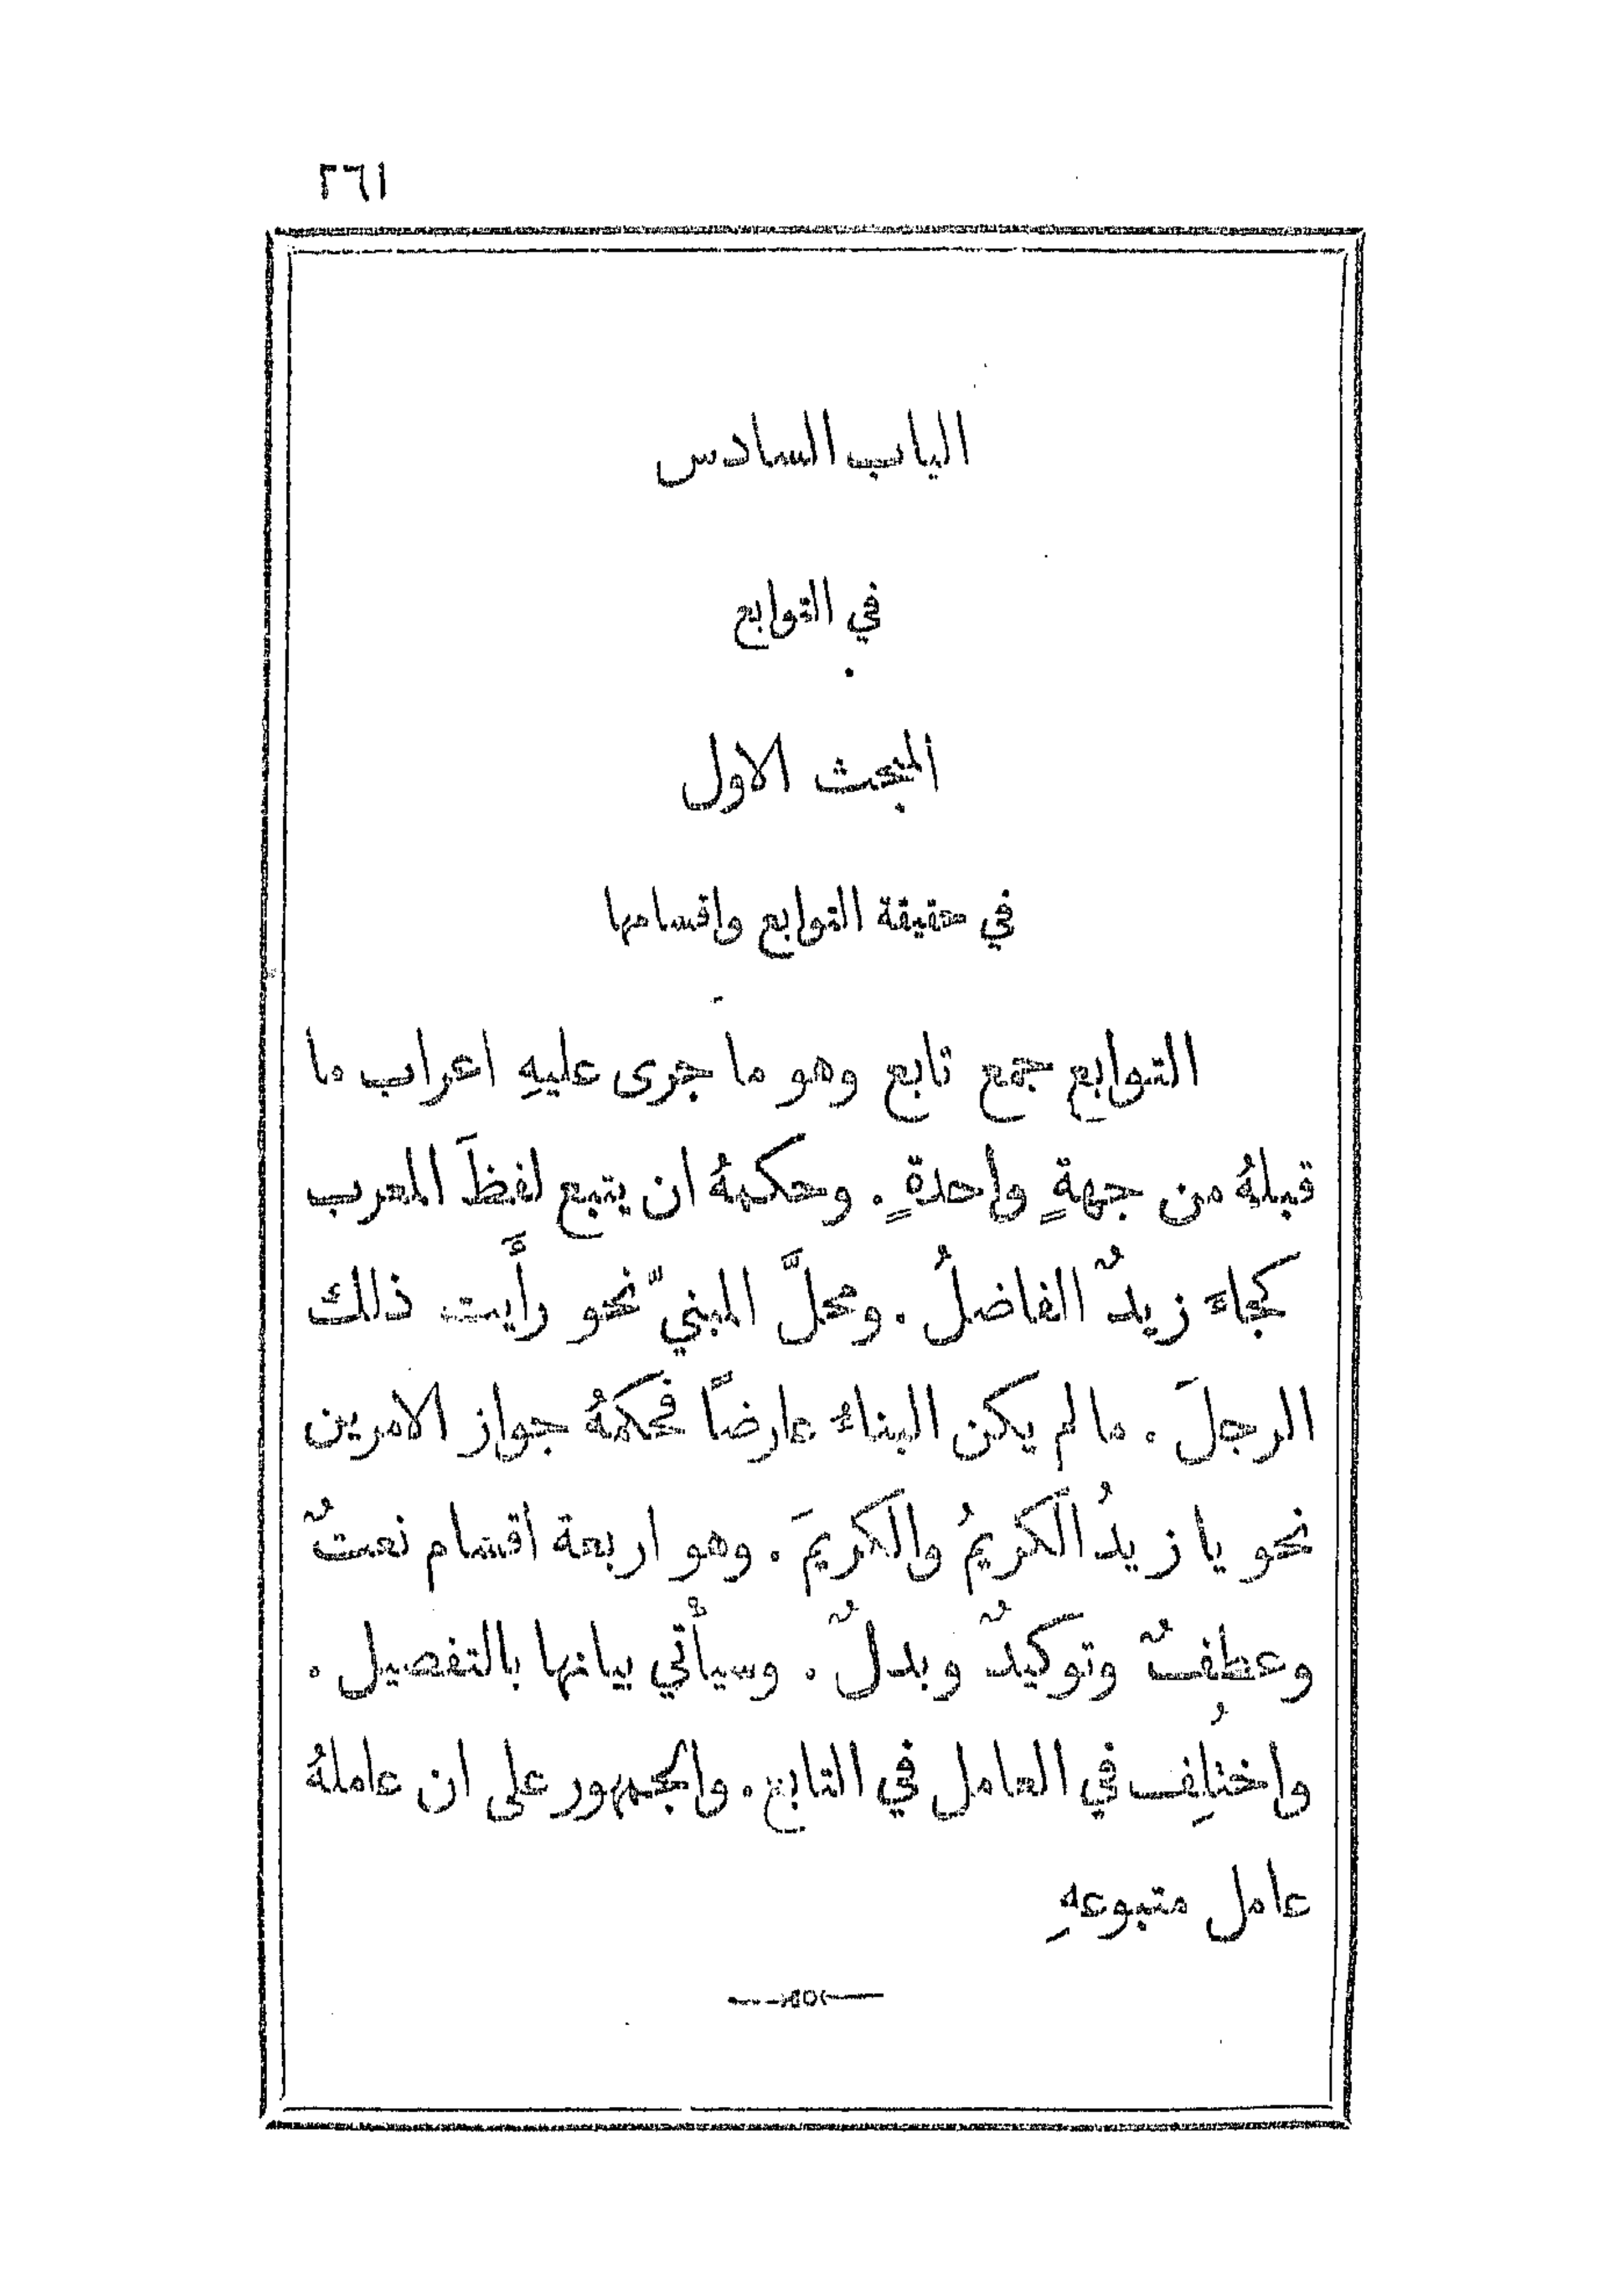 ٢٦١
الباب السادس
في التوابع
المبحث الاول
في حقيقة التوابع واقسامها
التوابع جمع تابع وهو ما جرى عليهِ اعراب ما
قبلهُ من جهةٍ واحدةٍ. وحكمهُ ان يتبع لفظَ المعرب
كجاءَ زيدٌ الفاضلُ. ومحلَّ المبنيّ نحو رأَيت ذلك
الرجلَ. ما لم يكن البناءُ عارضاً فحكمهُ جواز الامرين
نحو يا زيدُ الكريمُ والكريمَ. وهو اربعة اقسام نعتٌ
وعطفٌ وتوكيدٌ وبدلٌ. وسيأْتي بيانها بالتفصيل.
واختُلِف في العامل في التابع. والجمهور على ان عاملهُ
عامل متبوعهِ